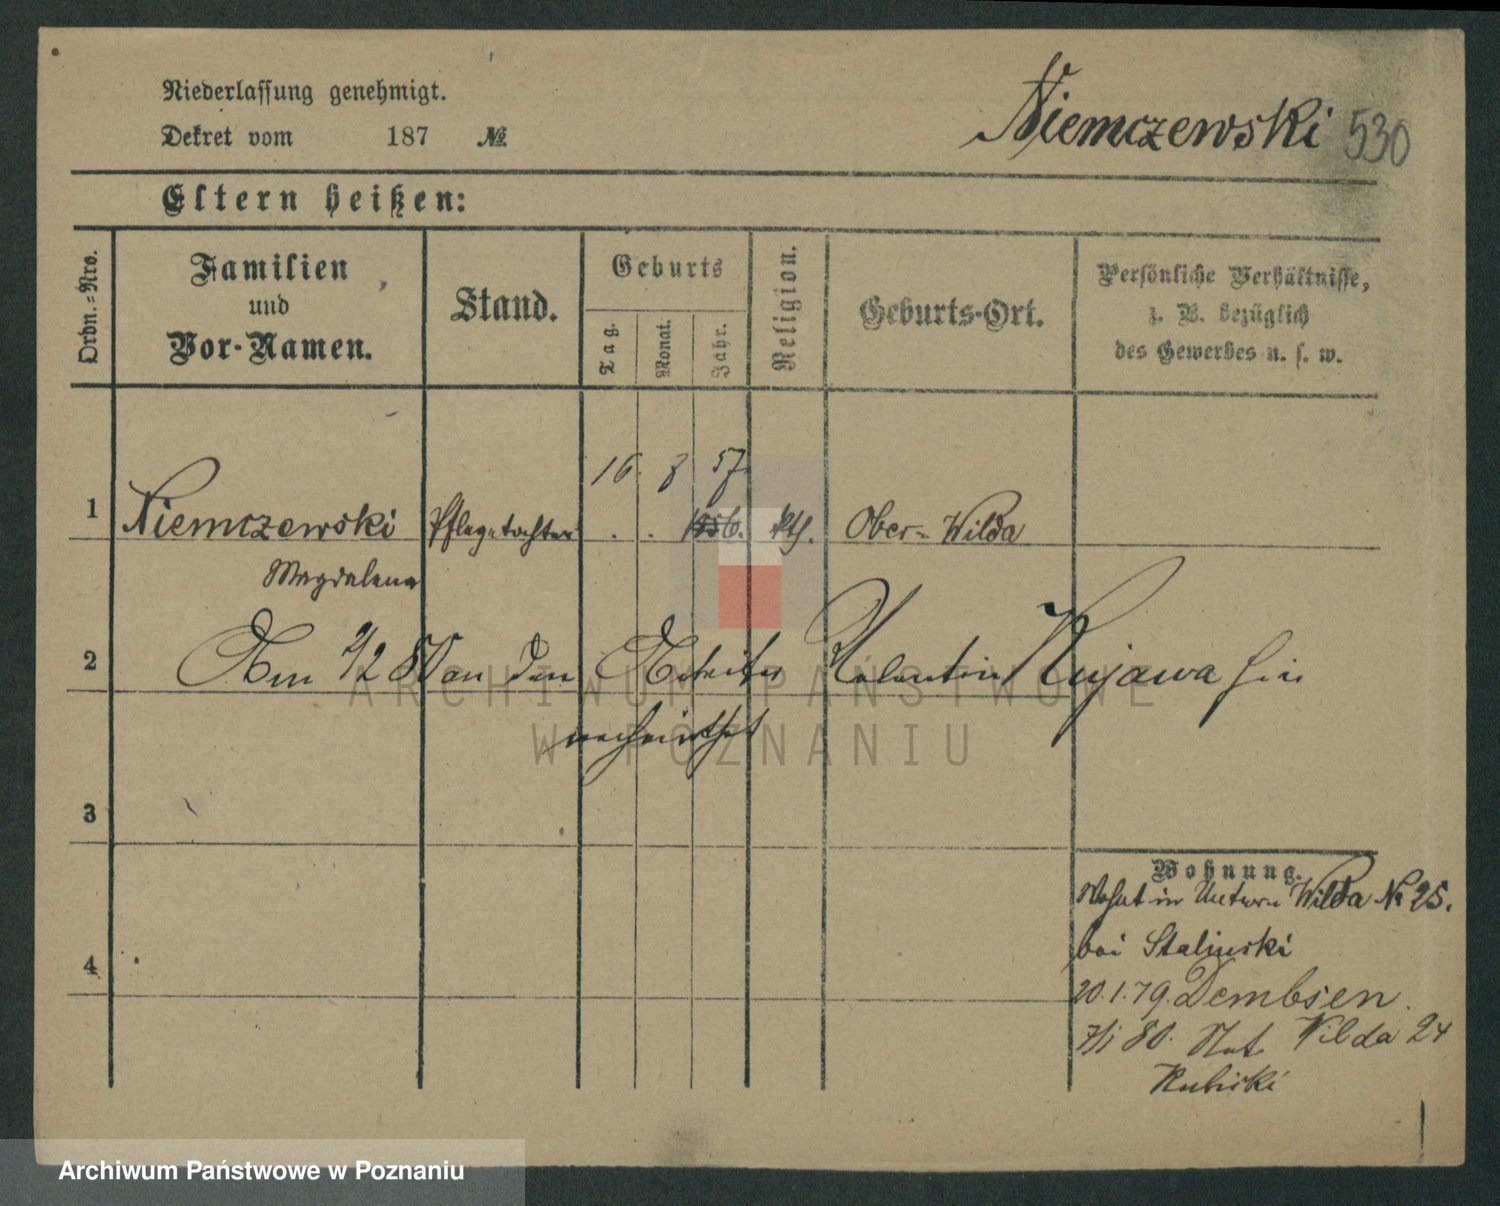 Niederlassung genehmigt.
Dekret vom 187 №
Niemczewski 530
Eltern heißen:
Ordn.=Nro.
Familien
und
Vor-Namen.
Stand.
Geburts
Tag.
Monat.
Jahr.
Religion.
Geburts-Ort.
Persönliche Verhältnisse,
z. B. bezüglich
des Gewerbes u. s. w.
16. 7 57
1 Niemczewski Pflegetochter . . 1856. kth. Ober= Wilda
Magdalena
2 Am 2/2 80 an den Arbeiter Valentin Kujawa hier
verheirathet
3
4
Wohnung.
Wohnt in Unter= Wilda № 25.
bei Stalinski
20.1.79. Dembsen.
7/1 80. Unt. Wilda 24
Kubicki
ARCHIWUM PAŃSTWOWE
W POZNANIU
Archiwum Państwowe w Poznaniu